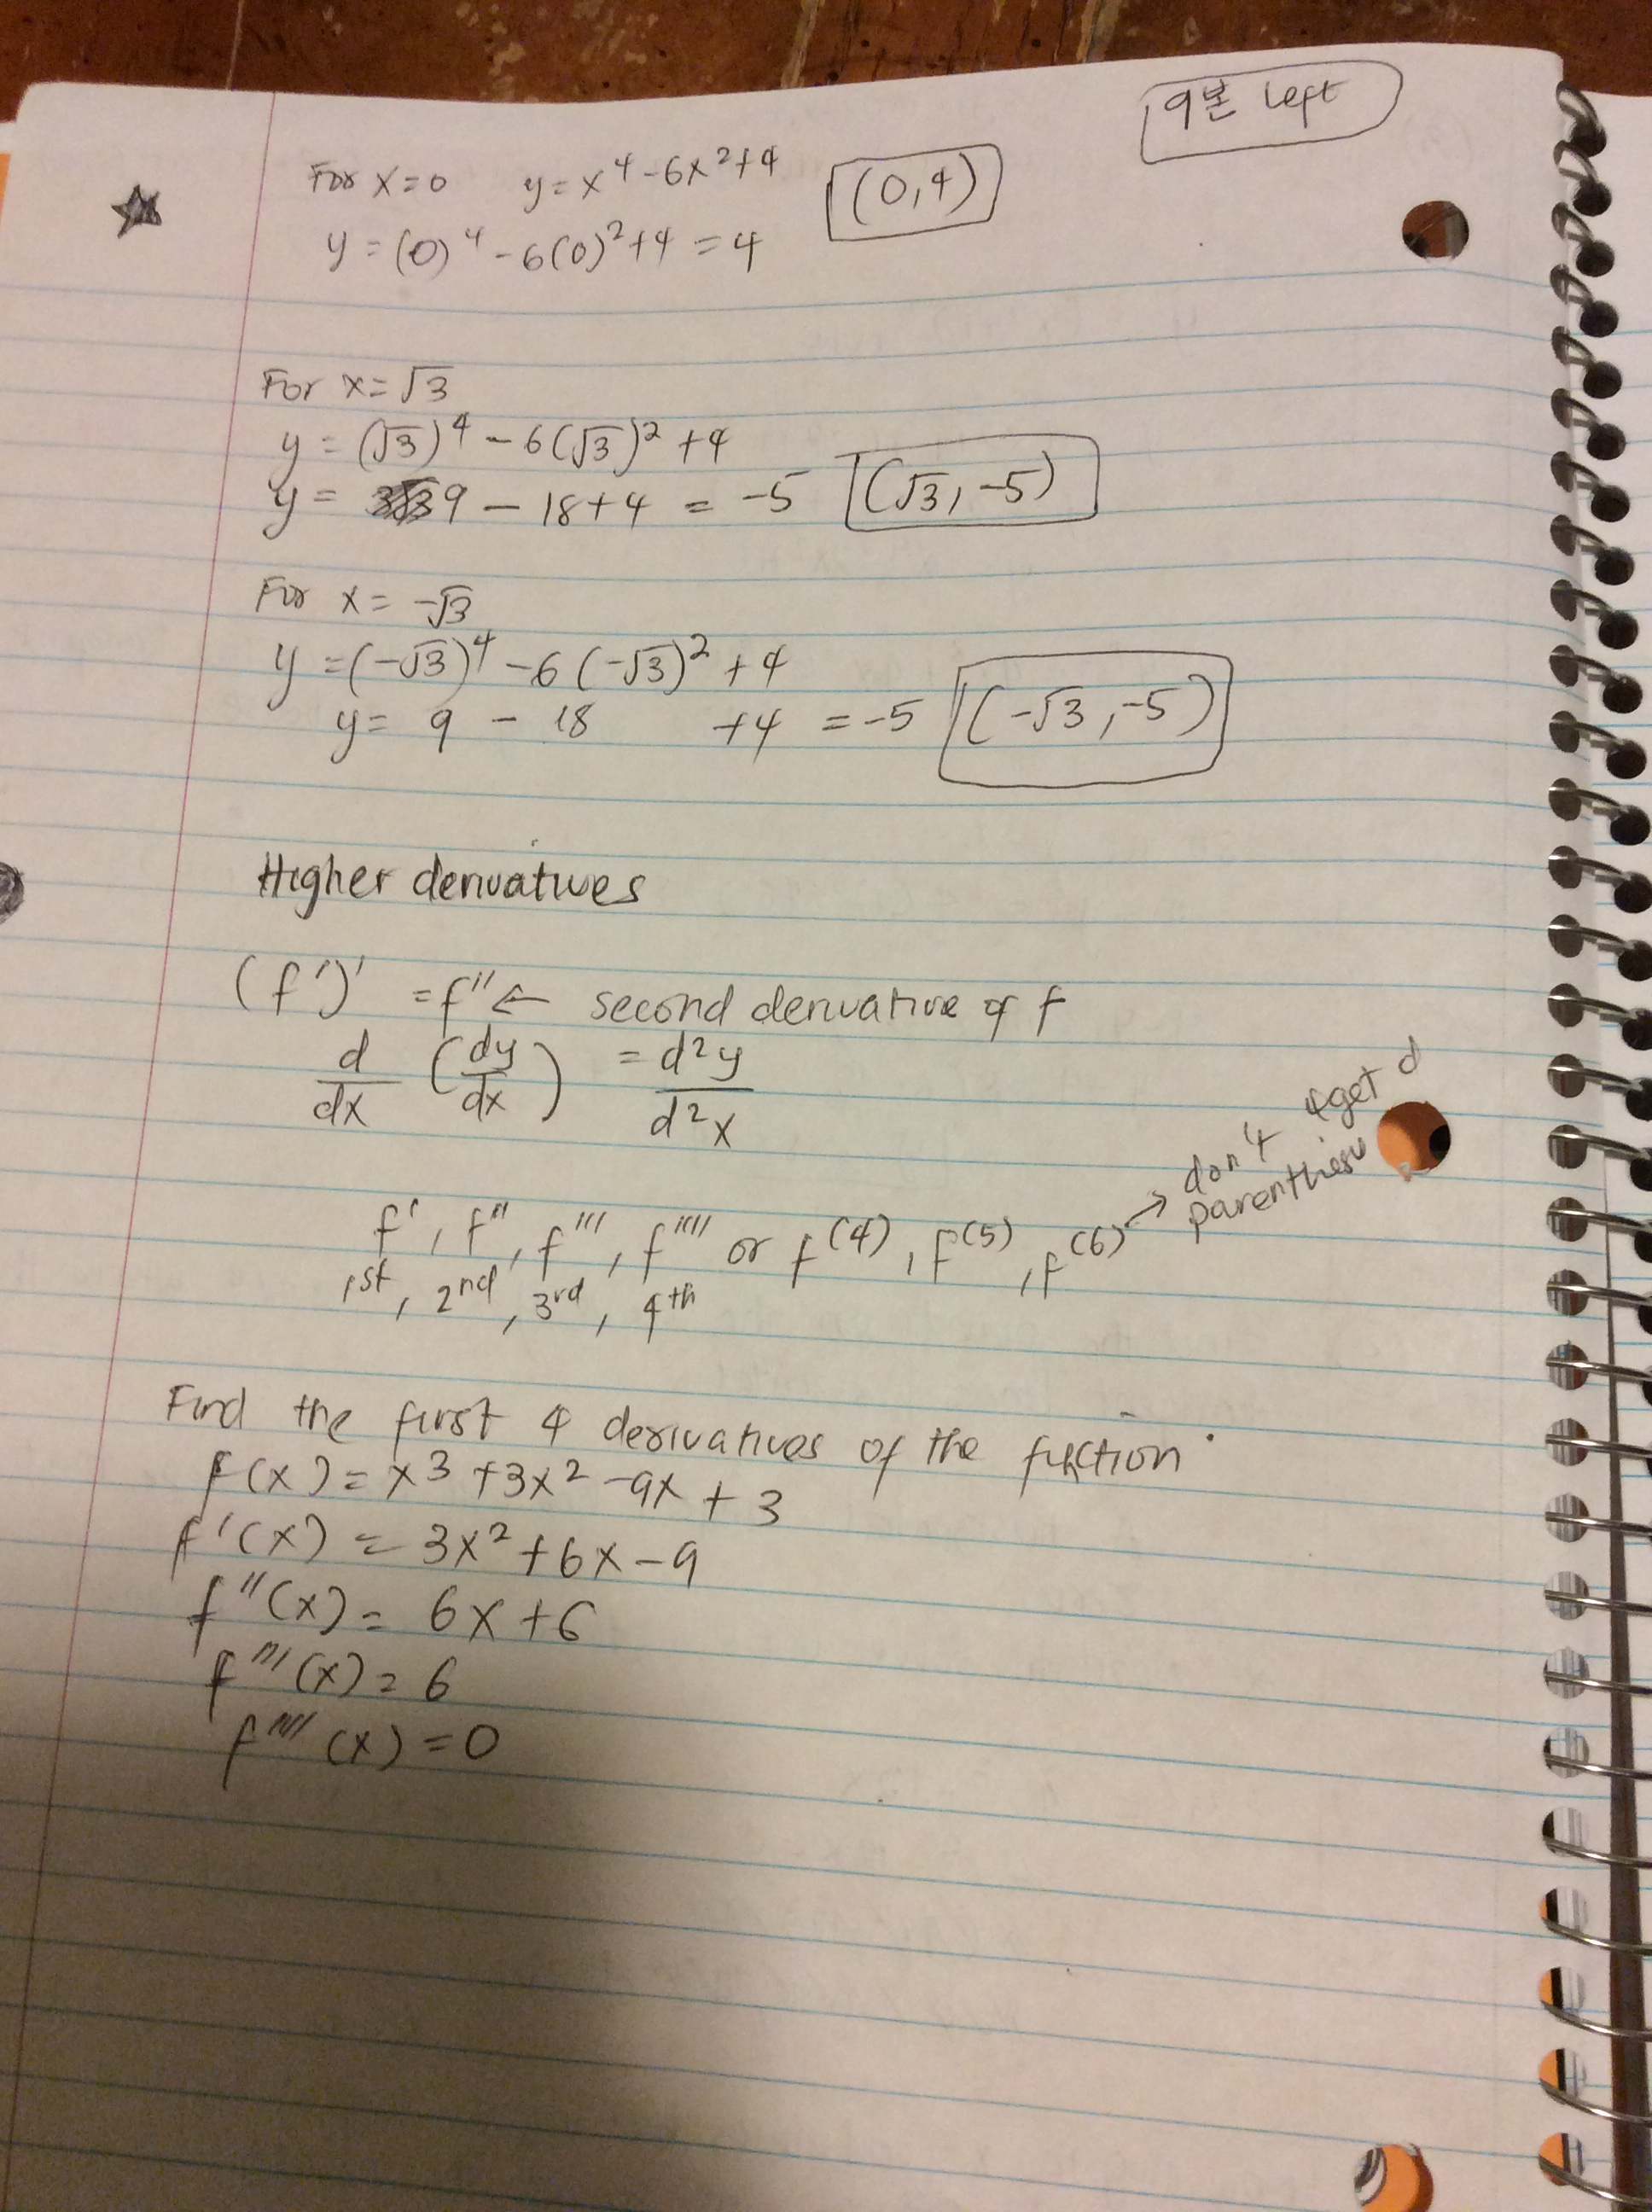 9분 left
For x=0 y=x⁴-6x²+4 (0,4)
y=(0)⁴-6(0)²+4=4
For x=√3
y=(√3)⁴-6(√3)²+4
y= 9-18+4=-5 (√3,-5)
For x=-√3
y=(-√3)⁴-6(-√3)²+4
y=9-18+4=-5 (-√3,-5)
Higher derivatives
(f')'=f''← second derivative of f
d/dx (dy/dx) = d²y/d²x
f', f'', f''', f'''' or f⁽⁴⁾, f⁽⁵⁾, f⁽⁶⁾ → don't 4get d
1st, 2nd, 3rd, 4th
Find the first 4 derivatives of the function
f(x)=x3+3x²-9x+3
f'(x)=3x²+6x-9
f''(x)=6x+6
f'''(x)=6
f''''(x)=0